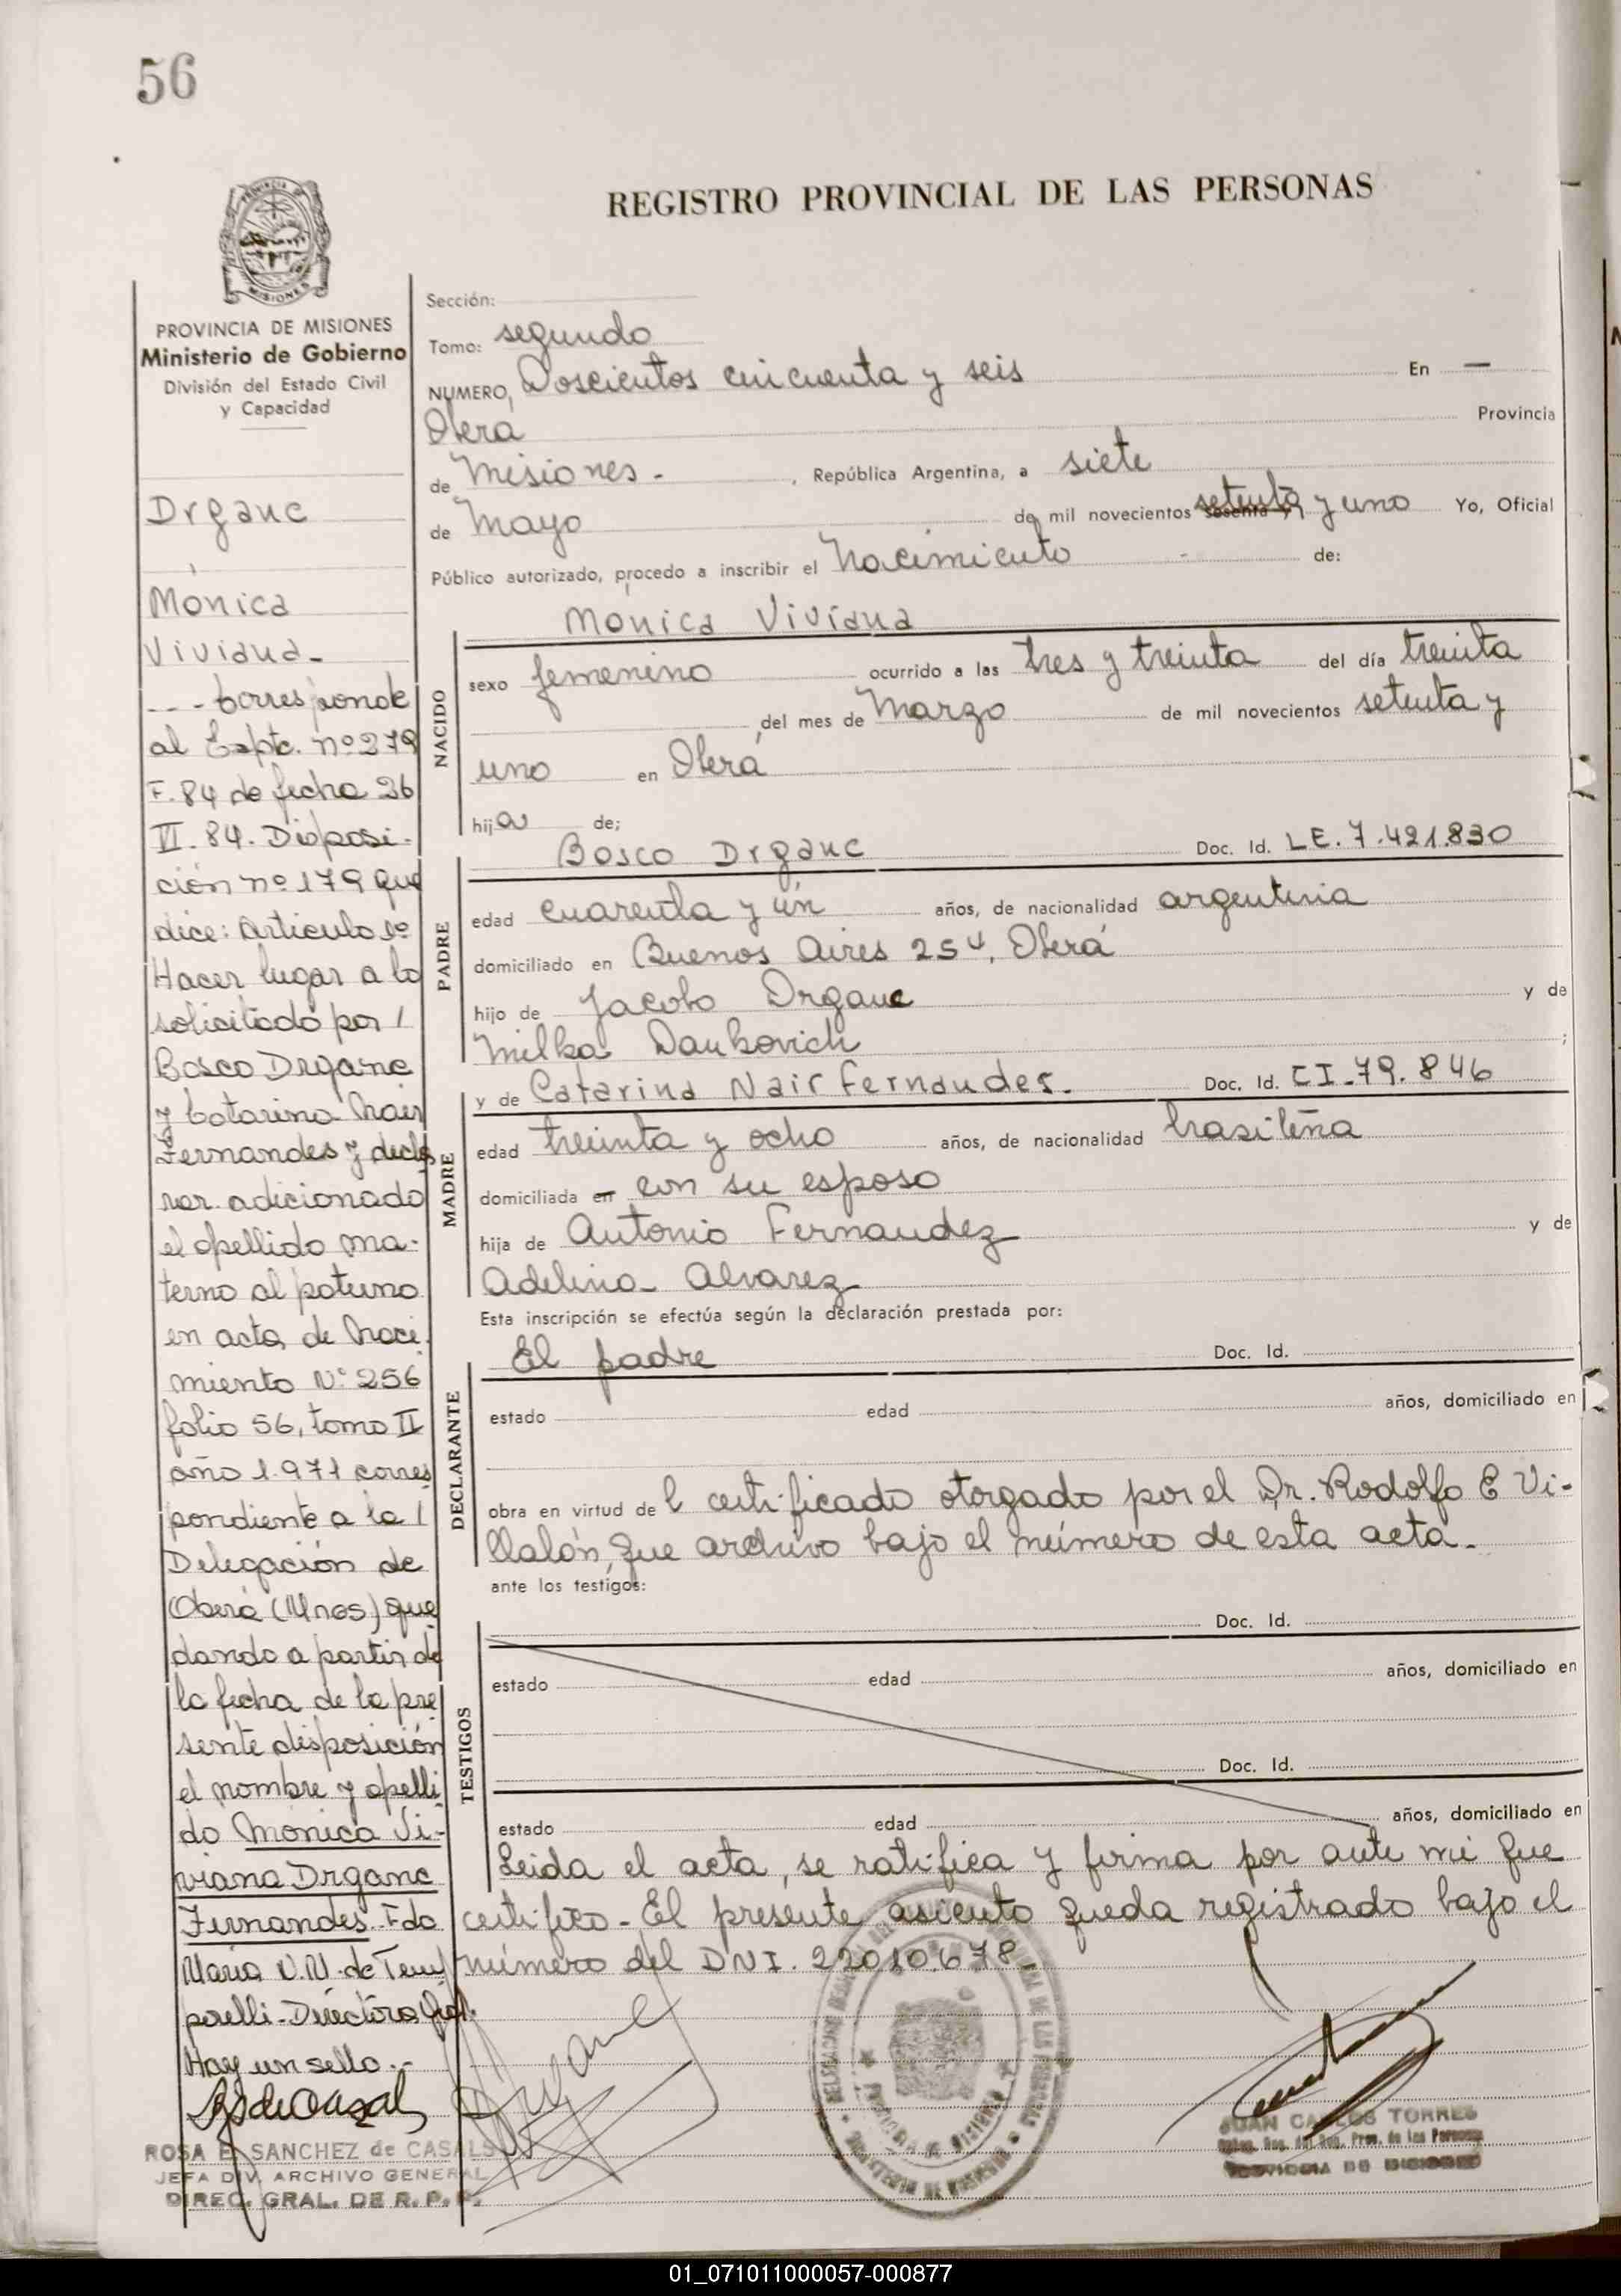 56
REGISTRO PROVINCIAL DE LAS PERSONAS
PROVINCIA DE MISIONES
Ministerio de Gobierno
División del Estado Civil
y Capacidad
Drganc
Monica
Viviana-
--- Corresponde
al Expte. nº 279
F. 84 de fecha 26
VI. 84. Disposi-
ción nº 179 que
dice: Articulo 1º
Hacer lugar a lo
solicitado por /
Bosco Drganc
y Catarina Nair
Fernandes y decla
rar adicionado
el apellido ma-
terno al paterno
en acta de Naci-
miento Nº 256
folio 56, tomo II
año 1.971 corres
pondiente a la /
Delegación de
Oberá (Mnes) que
dando a partir de
la fecha de la pre
sente disposición
el nombre y apelli
do Monica Vi-
viana Drganc
Fernandes. Fdo
Maria V.N. de Tem
porelli - Directora Gral.
Hay un sello.-
ROSA E. SANCHEZ de CASALS
JEFA DIV. ARCHIVO GENERAL
DIREC. GRAL. DE R. P. P.
Sección:
Tomo: segundo
NUMERO, Doscientos cincuenta y seis En —
Oberá Provincia
de Misiones - , República Argentina, a siete
de Mayo de mil novecientos setenta y uno Yo, Oficial
Público autorizado, procedo a inscribir el Nacimiento - de:
NACIDO
Monica Viviana
sexo femenino ocurrido a las tres y treinta del día treinta
del mes de Marzo de mil novecientos setenta y
uno en Oberá
hija de;
PADRE
Bosco Drganc Doc. Id. LE. 7.421.830
edad cuarenta y un años, de nacionalidad argentina
domiciliado en Buenos Aires 254, Oberá
hijo de Jacobo Drganc y de
Milka Daukovich ;
MADRE
y de Catarina Nair Fernandes. Doc. Id. CI-79.846
edad treinta y ocho años, de nacionalidad brasileña
domiciliada en con su esposo
hija de Antonio Fernandez y de
Adelina Alvarez
Esta inscripción se efectúa según la declaración prestada por:
DECLARANTE
El padre Doc. Id.
estado edad años, domiciliado en
obra en virtud del certificado otorgado por el Dr. Rodolfo E Vi-
llalón, que archivo bajo el número de esta acta.
ante los testigos:
TESTIGOS
Doc. Id.
estado edad años, domiciliado en
Doc. Id.
estado edad años, domiciliado en
Leida el acta, se ratifica y firma por ante mi que
certifico - El presente asiento queda registrado bajo el
número del DNI. 22010678
JUAN CARLOS TORRES
Prov. de las Personas
PROVINCIA DE MISIONES
01_071011000057-000877